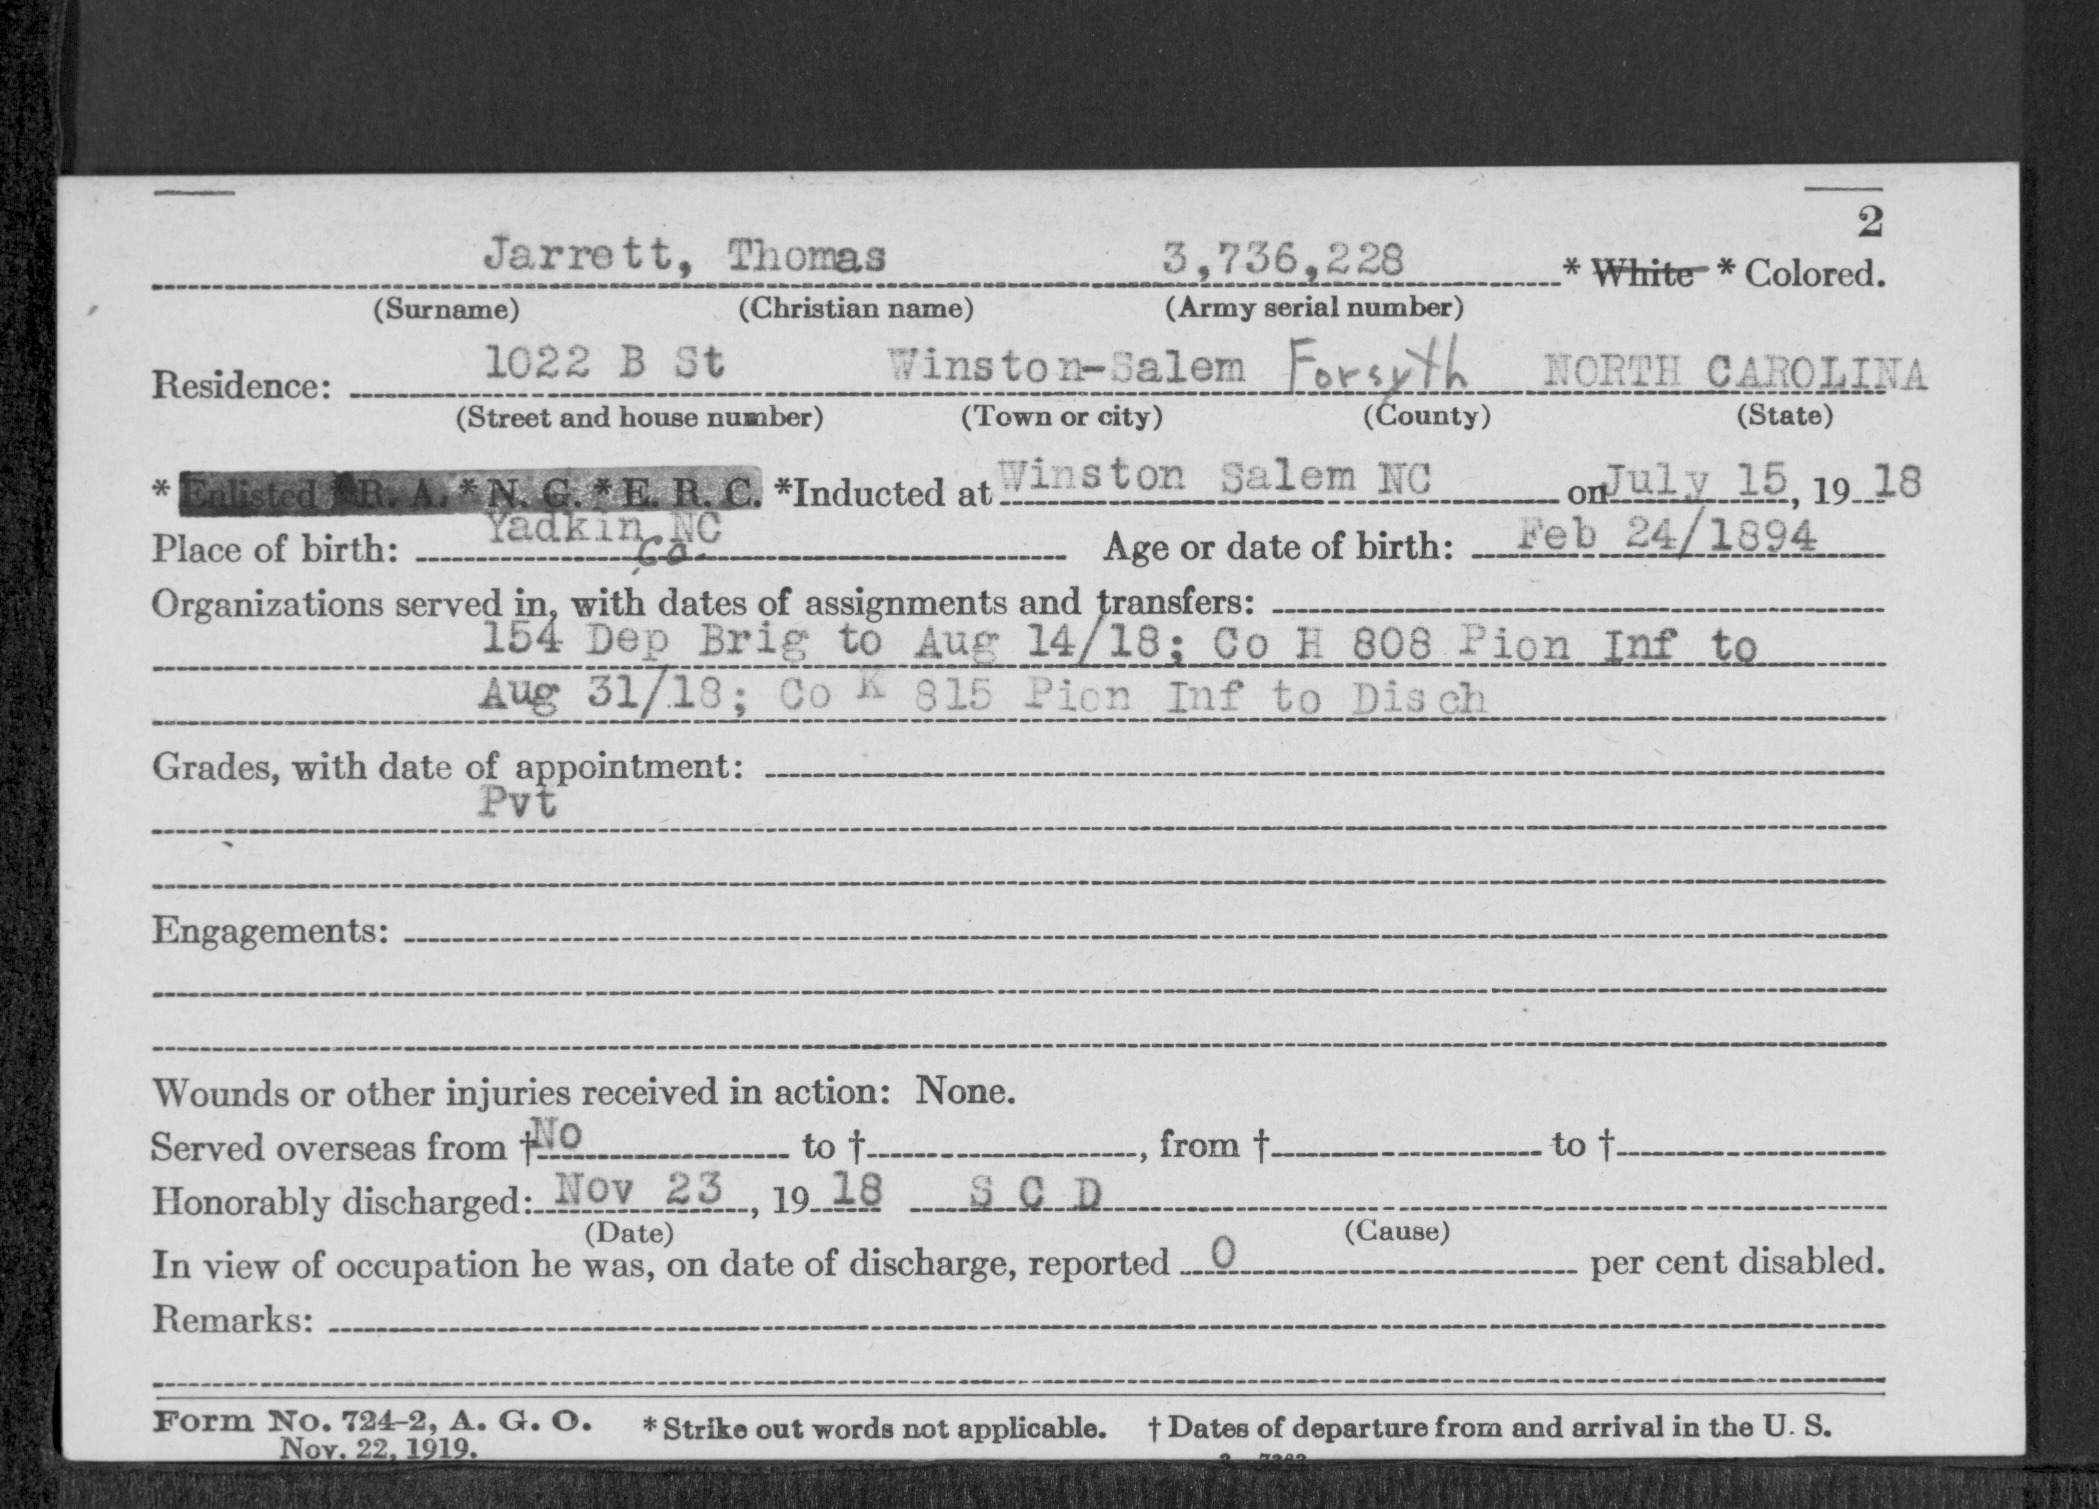 2
Jarrett, Thomas 3,736,228 * White * Colored.
(Surname) (Christian name) (Army serial number)
Residence: 1022 B St Winston-Salem Forsyth NORTH CAROLINA
(Street and house number) (Town or city) (County) (State)
* Enlisted * R. A. * N. G. * E. R. C. *Inducted at Winston Salem NC on July 15, 19 18
Place of birth: Yadkin Co. NC Age or date of birth: Feb 24/1894
Organizations served in, with dates of assignments and transfers:
154 Dep Brig to Aug 14/18; Co H 808 Pion Inf to
Aug 31/18; Co K 815 Pion Inf to Disch
Grades, with date of appointment:
Pvt
Engagements:
Wounds or other injuries received in action: None.
Served overseas from † No to †, from † to †
Honorably discharged: Nov 23, 19 18 S C D
(Date) (Cause)
In view of occupation he was, on date of discharge, reported 0 per cent disabled.
Remarks:
Form No. 724-2, A. G. O. * Strike out words not applicable. † Dates of departure from and arrival in the U. S.
Nov. 22, 1919.